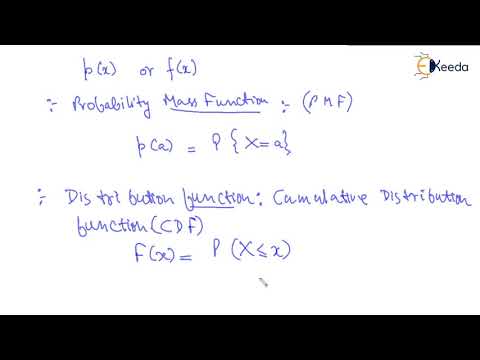 Ekeeda
p(x) or f(x)
∵ Probability Mass Function :- (PMF)
p(a) = P{X=a}
∵ Distribution function: Cumulative Distribution
function (CDF)
F(x) = P(X≤x)